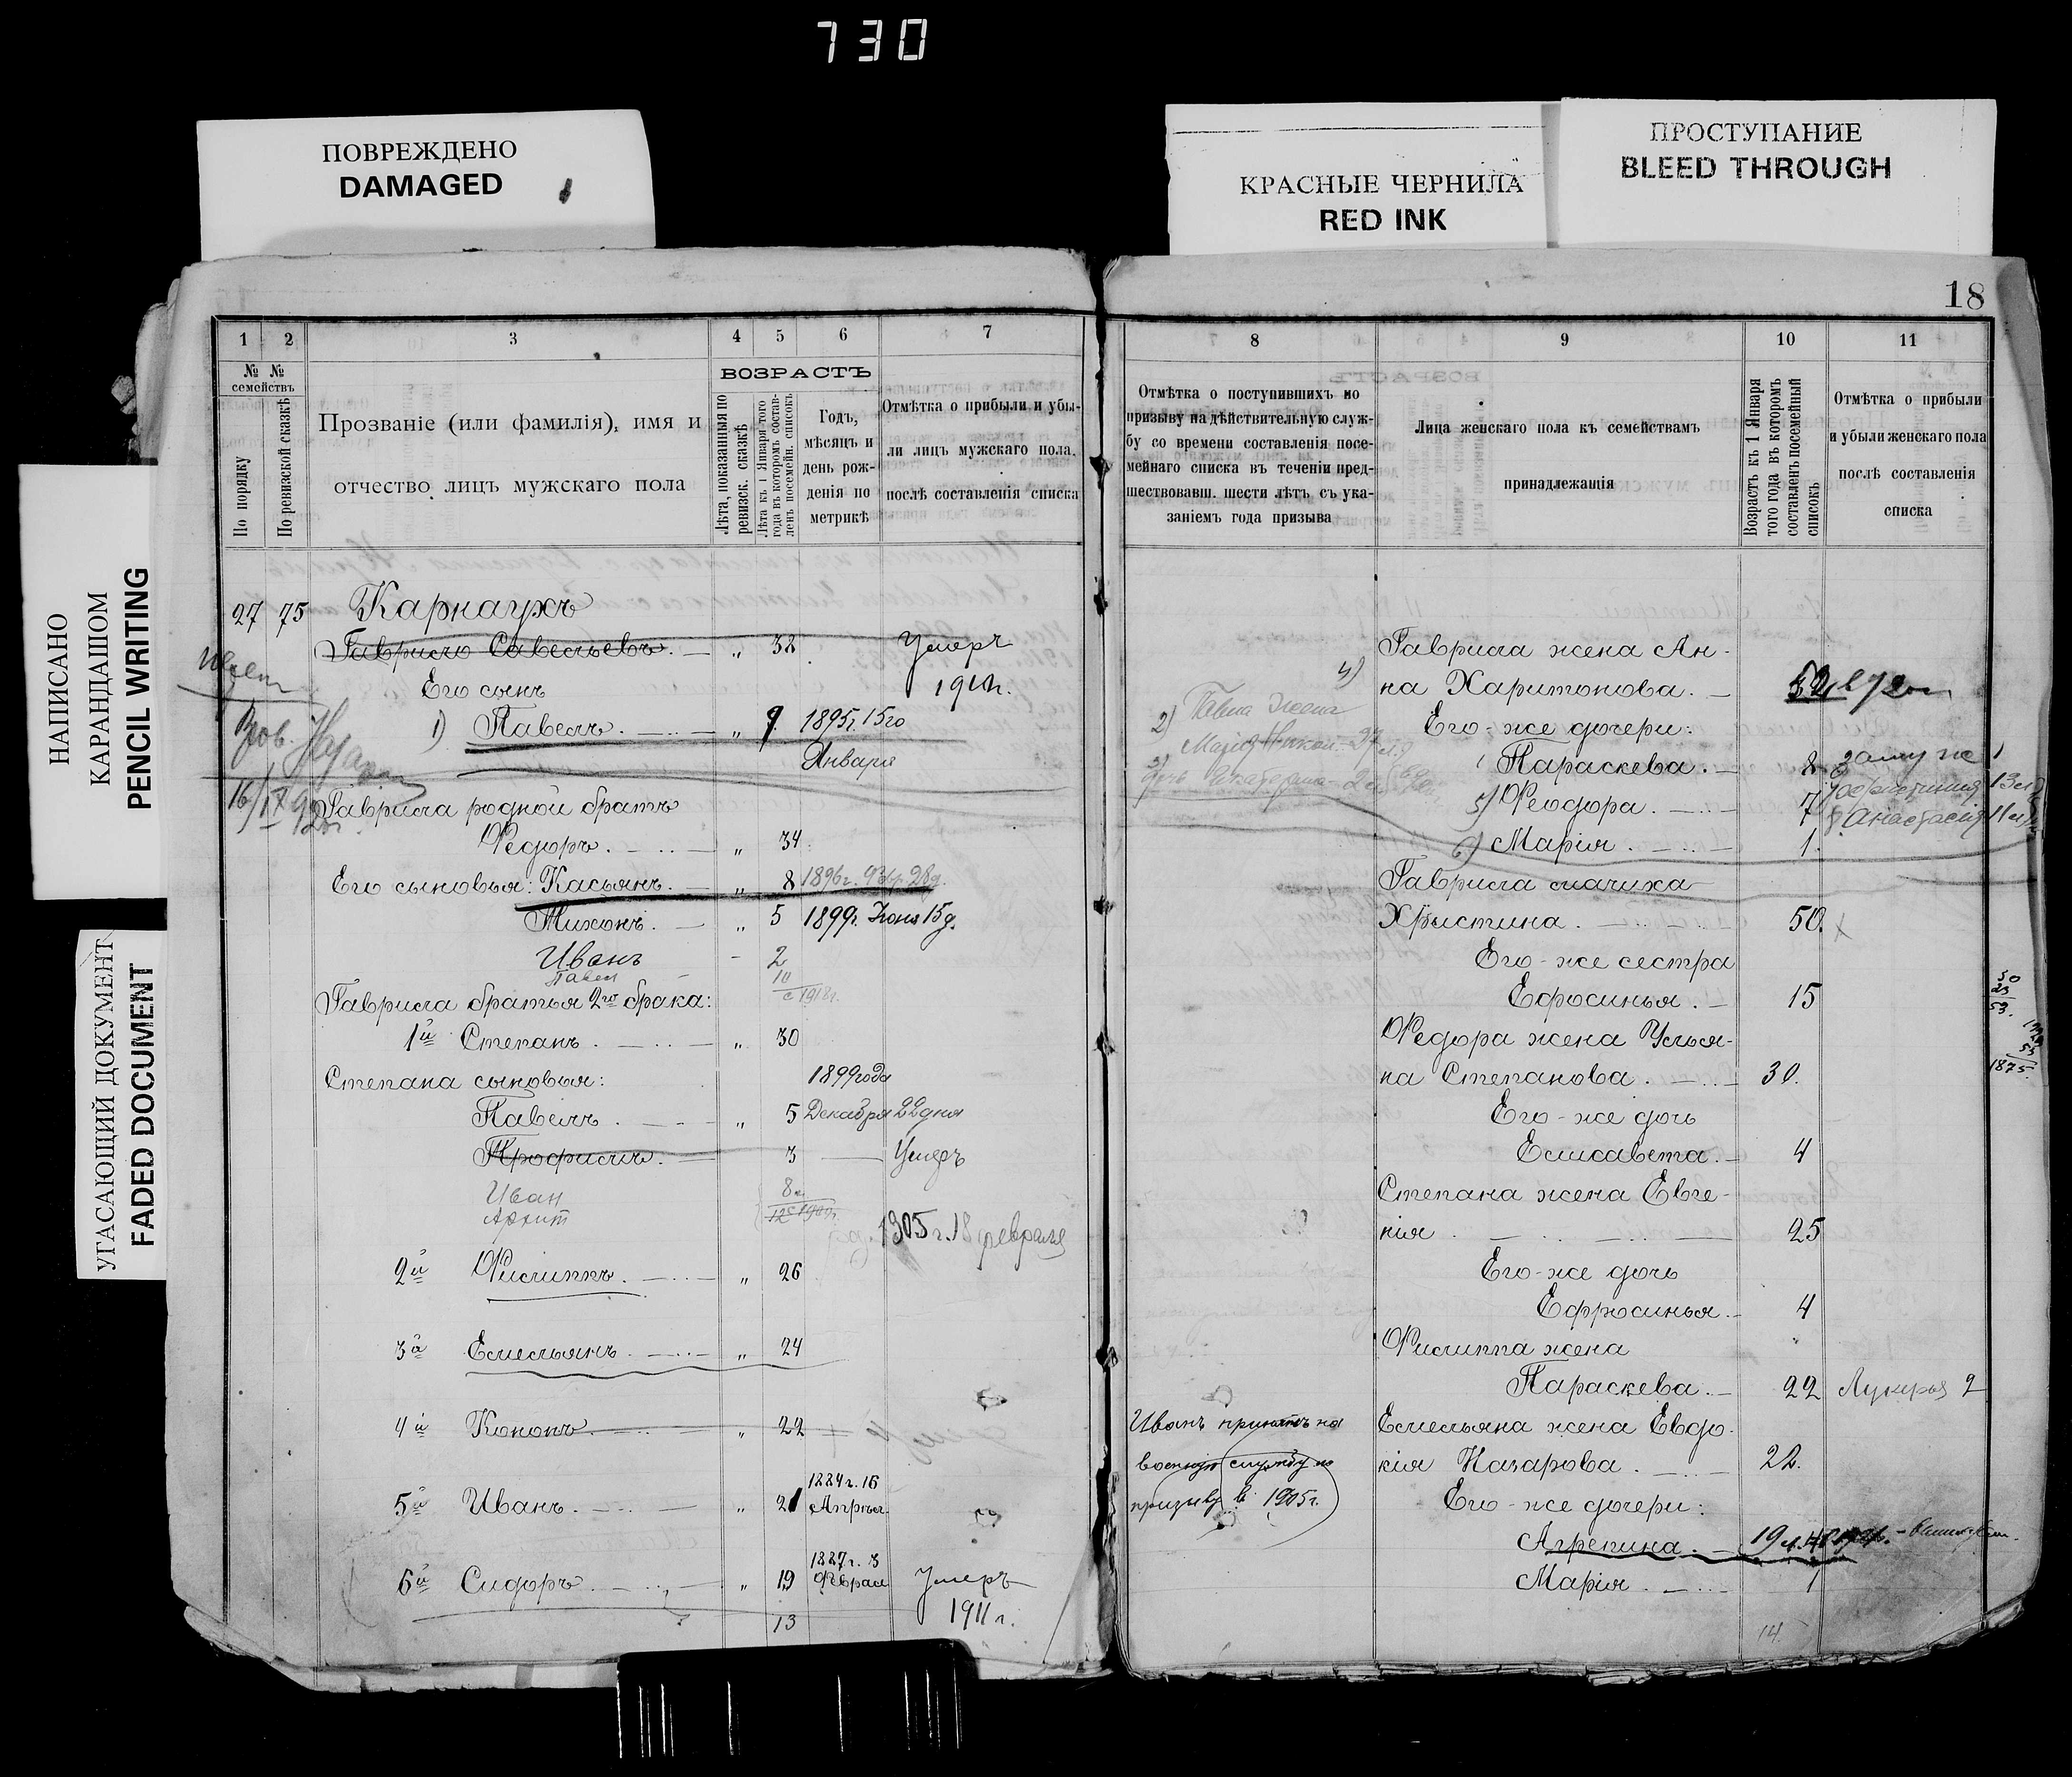 730
ПОВРЕЖДЕНО
DAMAGED
КРАСНЫЕ ЧЕРНИЛА
RED INK
ПРОСТУПАНИЕ
BLEED THROUGH
НАПИСАНО
КАРАНДАШОМ
PENCIL WRITING
УГАСАЮЩИЙ ДОКУМЕНТ
FADED DOCUMENT
1 2 3 4 5 6 7
№ №
семействъ
По порядку
По ревизской сказкѣ
Прозваніе (или фамилія), имя и
отчество лицъ мужскаго пола
ВОЗРАСТЪ
Лѣта, показанныя по
ревизск. сказкѣ
Лѣта къ 1 Января того
года въ которомъ состав-
ленъ посемейн. списокъ
Годъ,
мѣсяцъ и
день рож-
денія по
метрикѣ
Отмѣтка о прибыли и убы-
ли лицъ мужскаго пола.
послѣ составленія списка
27 75 Карнаухъ
Гаврило Савельевъ. „ 38 Умеръ
Его сынъ
1) Павелъ. „ 9. 1895г. 15го
Января
Гаврила родной братъ
Федоръ. „ 34
Его сыновья: Касьянъ. „ 8 1896г. 28д.
Тихонъ. „ 5 1899г. Іюня 15д.
Иванъ - 2
Павел 10
с 1918г.
Гаврила братья 2го брака:
1й Степанъ. „ 30
Степана сыновья: 1899 года
Павелъ. „ 5 Декабря 22 дня
Трофимъ. 3 Умеръ
Иван 8
Архип
1905г. 18 февраля
2й Филиппъ. „ 26
3й Емельянъ. „ 24
4й Кононъ. „ 22
5й Иванъ. „ 21 1884г. 16
Апрѣля
6й Сидоръ. „ 19 1887г. 3
Феврал Умеръ
1911г.
13
18
8 9 10 11
Отмѣтка о поступившихъ по
призыву на дѣйствительную служ-
бу со времени составленія посе-
мейнаго списка въ теченіи пред-
шествовавш. шести лѣтъ съ ука-
заніемъ года призыва
Лица женскаго пола къ семействамъ
принадлежащія
Возрастъ къ 1 Января
того года въ которомъ
составленъ посемейный
списокъ
Отмѣтка о прибыли
и убыли женскаго пола
послѣ составленія
списка
Гаврила жена Ан-
4) на Харитонова.
2) Павла жена
Его-же дочери:
Параскева. 8 замуже
3) дочь Екатерина
5) Феодора. 7
6) Марія. 1. Анастасія 11
Гаврила мачиха
Христина. 50.
Его-же сестра
Ефросинья. 15
Федора жена Улья-
на Степанова. 30.
1875.
Его-же дочь
Елисавета. 4
Степана жена Евге-
нія 25
Его-же дочь
Ефросинья. 4
Филиппа жена
Параскева. 22 Лукерья 2
Иванъ принятъ на
военную службу по
призыву в 1905г.
Емельяна жена Евдо-
кія Назарова. 22.
Его-же дочери:
Агрепина. 19
Марія. 1
14.